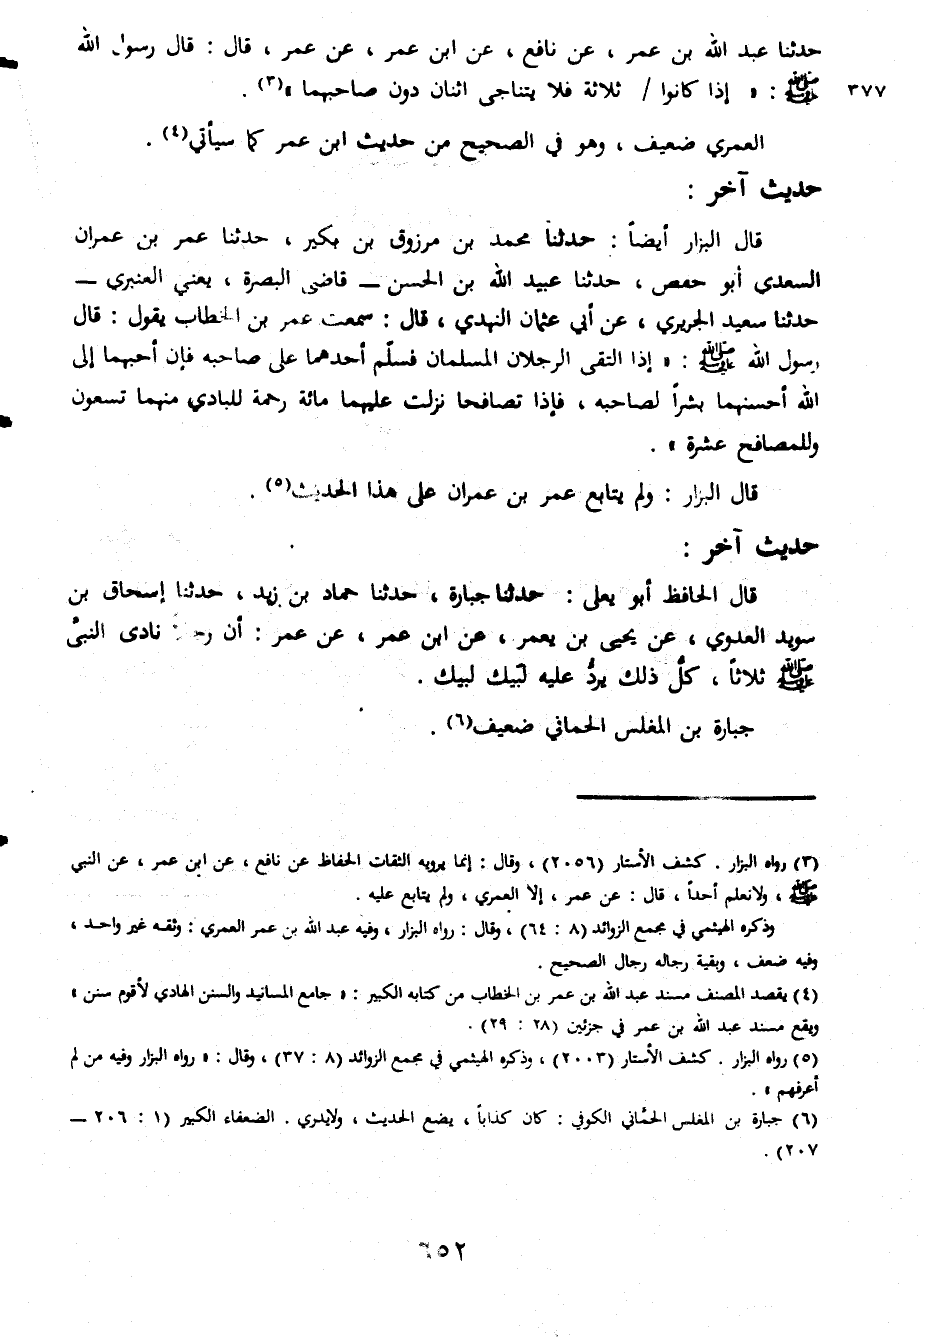 حدثنا عبد الله بن عمر ، عن نافع ، عن ابن عمر ، عن عمر ، قال : قال رسول الله
ﷺ : « إذا كانوا / ثلاثة فلا يتناجى اثنان دون صاحبهما »(٣) .
٣٧٧
العمري ضعيف ، وهو في الصحيح من حديث ابن عمر كما سيأتي(٤) .
حديث آخر :
قال البزار أيضاً : حدثنا محمد بن مرزوق بن بكير ، حدثنا عمر بن عمران
السعدي أبو حفص ، حدثنا عبيد الله بن الحسن ــ قاضي البصرة ، يعني العنبري ــ
حدثنا سعيد الجريري ، عن أبي عثمان النهدي ، قال : سمعت عمر بن الخطاب يقول : قال
رسول الله ﷺ : « إذا التقى الرجلان المسلمان فسلّم أحدهما على صاحبه فإن أحبهما إلى
الله أحسنهما بشراً لصاحبه ، فإذا تصافحا نزلت عليهما مائة رحمة للبادي منهما تسعون
وللمصافح عشرة » .
قال البزار : ولم يتابع عمر بن عمران على هذا الحديث(٥) .
حديث آخر :
قال الحافظ أبو يعلى : حدثنا جبارة ، حدثنا حماد بن زيد ، حدثنا إسحاق بن
سويد العدوي ، عن يحيى بن يعمر ، عن ابن عمر ، عن عمر : أن رجلاً نادى النبيَّ
ﷺ ثلاثاً ، كلُّ ذلك يردُّ عليه لبّيك لبيك .
جبارة بن المغلس الحماني ضعيف(٦) .
(٣) رواه البزار . كشف الأستار (٢٠٥٦) ، وقال : إنما يرويه الثقات الحفاظ عن نافع ، عن ابن عمر ، عن النبي
ﷺ ، ولانعلم أحداً ، قال : عن عمر ، إلا العمري ، ولم يتابع عليه .
وذكره الهيثمي في مجمع الزوائد (٨ : ٦٤) ، وقال : رواه البزار ، وفيه عبد الله بن عمر العمري : وثقه غير واحد ،
وفيه ضعف ، وبقية رجاله رجال الصحيح .
(٤) يقصد المصنف مسند عبد الله بن عمر بن الخطاب من كتابه الكبير : « جامع المسانيد والسنن الهادي لأقوم سنن »
ويقع مسند عبد الله بن عمر في جزئين (٢٨ : ٢٩) .
(٥) رواه البزار . كشف الأستار (٢٠٠٣) ، وذكره الهيثمي في مجمع الزوائد (٨ : ٣٧) ، وقال : « رواه البزار وفيه من لم
أعرفهم » .
(٦) جبارة بن المغلس الحمّاني الكوفي : كان كذاباً ، يضع الحديث ، ولايدري . الضعفاء الكبير (١ : ٢٠٦ ــ
٢٠٧) .
٦٥٢